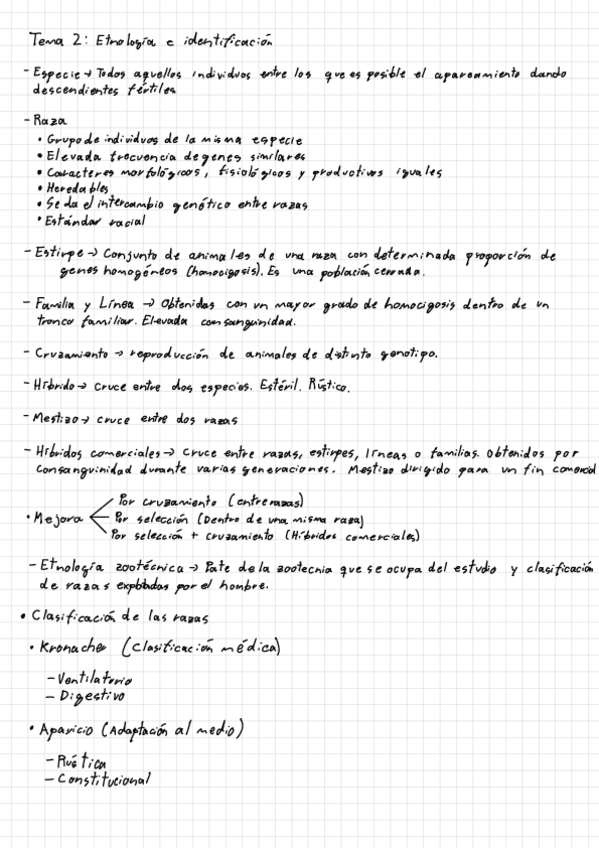 Tema 2: Etnología e identificación
- Especie → Todos aquellos individuos entre los que es posible el apareamiento dando
descendientes fértiles
- Raza
• Grupo de individuos de la misma especie
• Elevada frecuencia de genes similares
• Caracteres morfológicos, fisiológicos y productivos iguales
• Heredables
• Se da el intercambio genético entre razas
• Estándar racial
- Estirpe → Conjunto de animales de una raza con determinada proporción de
genes homogéneos (homocigosis). Es una población cerrada.
- Familia y Línea → Obtenidas con un mayor grado de homocigosis dentro de un
tronco familiar. Elevada consanguinidad.
- Cruzamiento → reproducción de animales de distinto genotipo.
- Híbrido → cruce entre dos especies. Estéril. Rústico.
- Mestizo → cruce entre dos razas
- Híbridos comerciales → Cruce entre razas, estirpes, líneas o familias. Obtenidos por
consanguinidad durante varias generaciones. Mestizo dirigido para un fin comercial
Por cruzamiento (entre razas)
• Mejora Por selección (Dentro de una misma raza)
Por selección + cruzamiento (Híbridos comerciales)
- Etnología zootécnica → Pate de la zootecnia que se ocupa del estudio y clasificación
de razas explotadas por el hombre.
• Clasificación de las razas
• Kronacher (Clasificación médica)
- Ventilatorio
- Digestivo
• Aparicio (Adaptación al medio)
- Rústica
- Constitucional